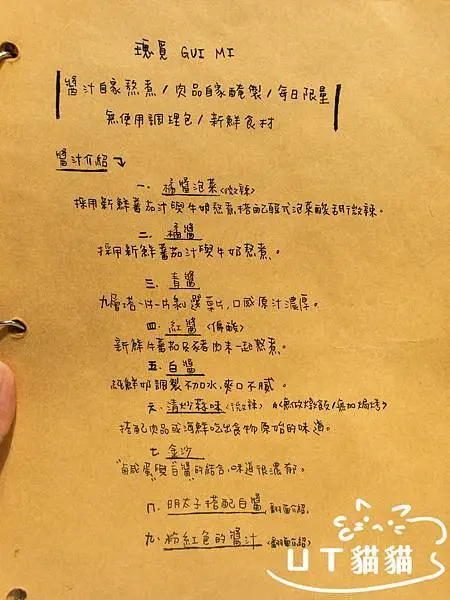 瑰覓 GUI MI
醬汁自家熬煮/肉品自家醃製/每日限量
無使用調理包/新鮮食材
醬汁介紹
一、橘醬泡菜(微辣)
採用新鮮蕃茄汁與牛奶熬煮,搭配韓式泡菜酸甜微辣。
二、橘醬
採用新鮮蕃茄汁與牛奶熬煮。
三、青醬
九層塔一片一片剝選葉片,口感原汁濃厚。
四、紅醬(偏酸)
新鮮牛蕃茄及豬肉末一起熬煮。
五、白醬
純鮮奶調製不加水,爽口不膩。
六、清炒蒜味(微辣) (無做燉飯/無加焗烤)
搭配肉品或海鮮吃出食物原始的味道。
七、金沙
"鹹蛋"與"白醬"的結合,味道很濃郁。
八、明太子搭配白醬 (翻面介紹)
九、粉紅色的醬汁 (翻面介紹)
UT貓貓